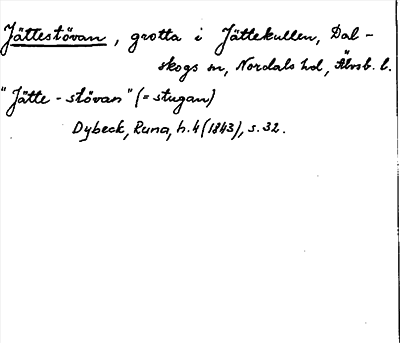 Jättestövan, grotta i Jättekullen, Dal-
skogs sn, Nordals hd, Älvsb. l.
"Jätte-stövan" (= stugan)
Dybeck, Runa, h. 4 (1843), s. 32.